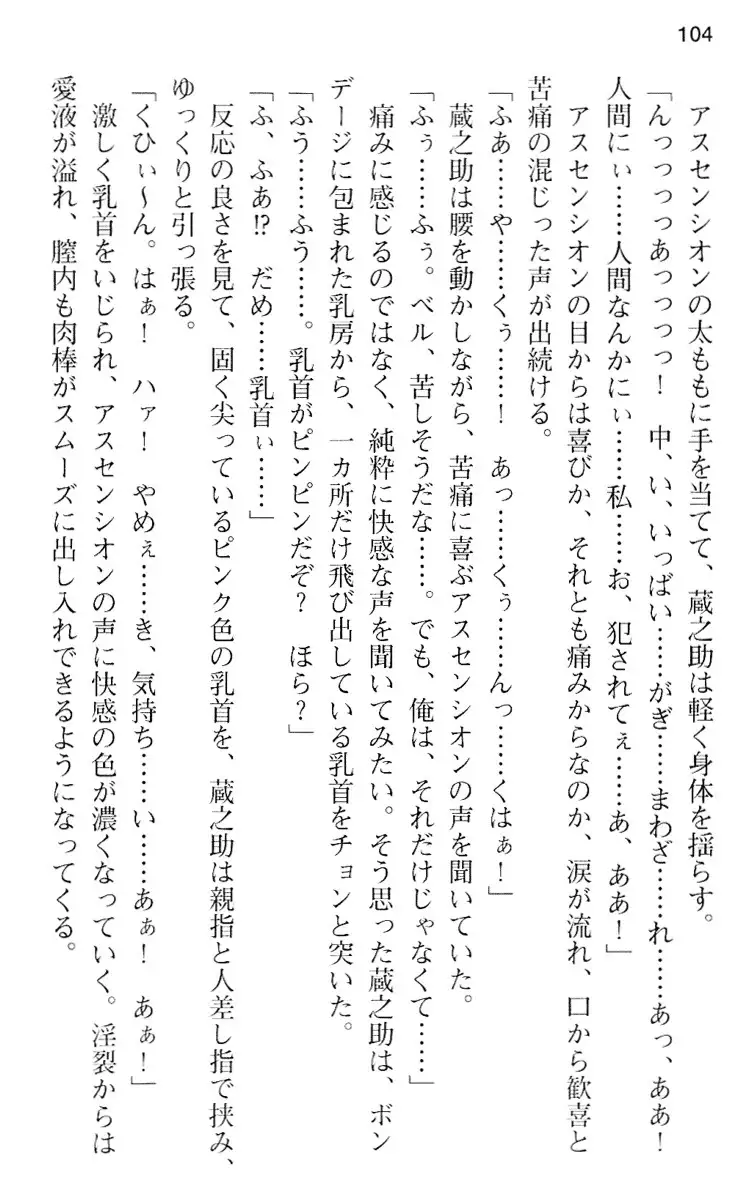 104
アスセンシオンの太ももに手を当てて、蔵之助は軽く身体を揺らす。
「んっっっっあっっっっ！　中、い、いっぱい……がぎ……まわざ……れ……あっ、ああ！
人間にぃ……人間なんかにぃ……私……お、犯されてぇ……あ、ああ！」
アスセンシオンの目からは喜びか、それとも痛みからなのか、涙が流れ、口から歓喜と
苦痛の混じった声が出続ける。
「ふあ……や……くぅ……！　あっ……くぅ……んっ……くはぁ！」
蔵之助は腰を動かしながら、苦痛に喜ぶアスセンシオンの声を聞いていた。
「ふぅ……ふぅ。ベル、苦しそうだな……。でも、俺は、それだけじゃなくて……」
痛みに感じるのではなく、純粋に快感な声を聞いてみたい。そう思った蔵之助は、ボン
デージに包まれた乳房から、一カ所だけ飛び出している乳首をチョンと突いた。
「ふう……ふう……。乳首がピンピンだぞ？　ほら？」
「ふ、ふあ!?　だめ……乳首ぃ……」
反応の良さを見て、固く尖っているピンク色の乳首を、蔵之助は親指と人差し指で挟み、
ゆっくりと引っ張る。
「くひぃ〜ん。はぁ！　ハァ！　やめぇ……き、気持ち……い……あぁ！　あぁ！」
激しく乳首をいじられ、アスセンシオンの声に快感の色が濃くなっていく。淫裂からは
愛液が溢れ、膣内も肉棒がスムーズに出し入れできるようになってくる。